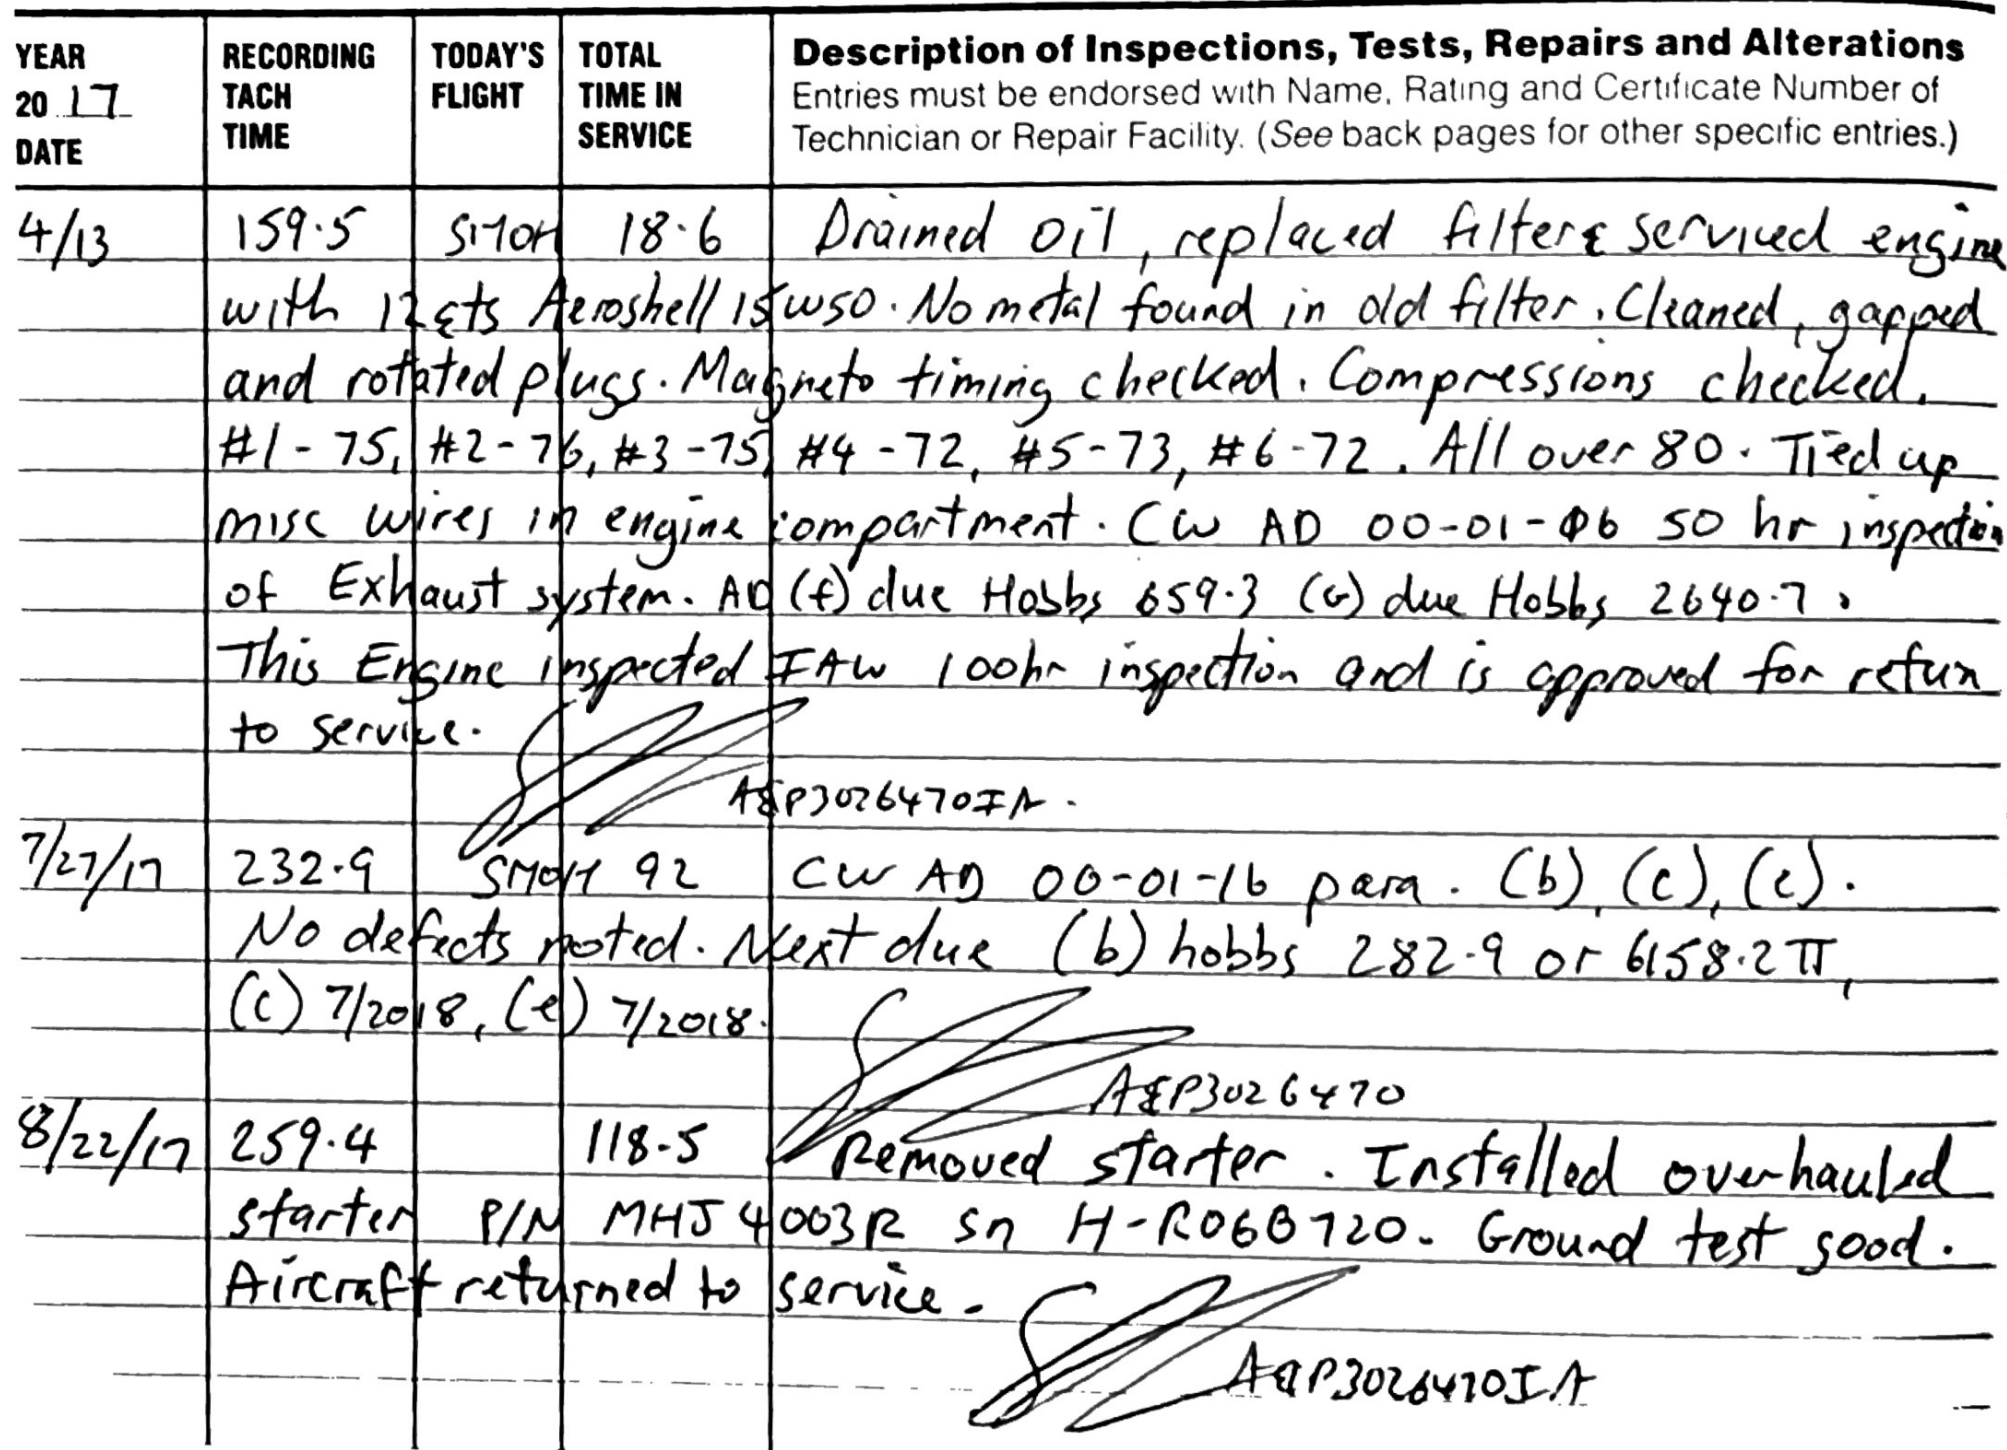 YEAR 2017 DATE
RECORDING TACH TIME
TODAY'S FLIGHT
TOTAL TIME IN SERVICE
Description of Inspections, Tests, Repairs and Alterations
Entries must be endorsed with Name, Rating and Certificate Number of
Technician or Repair Facility. (See back pages for other specific entries.)
4/13 159.5 SMOH 18.6 Drained oil, replaced filter & serviced engine
with 12 qts Aeroshell 15W50. No metal found in old filter. Cleaned, gapped
and rotated plugs. Magneto timing checked. Compressions checked.
#1-75, #2-76, #3-75, #4-72, #5-73, #6-72. All over 80. Tied up
misc wires in engine compartment. CW AD 00-01-06 50 hr inspection
of Exhaust system. AD (f) due Hobbs 659.3 (G) due Hobbs 2640.7.
This Engine inspected IAW 100hr inspection and is approved for retun
to service.
A&P3026470IA.
7/27/17 232.9 SMOH 92 CW AD 00-01-16 para. (b), (c), (e).
No defects noted. Next due (b) hobbs 282.9 or 6158.2 TT,
(c) 7/2018, (e) 7/2018.
A&P3026470
8/22/17 259.4 118.5 Removed starter. Installed overhauled
starter P/N MHJ4003R sn H-R060720. Ground test good.
Aircraft returned to service.
A&P3026470IA